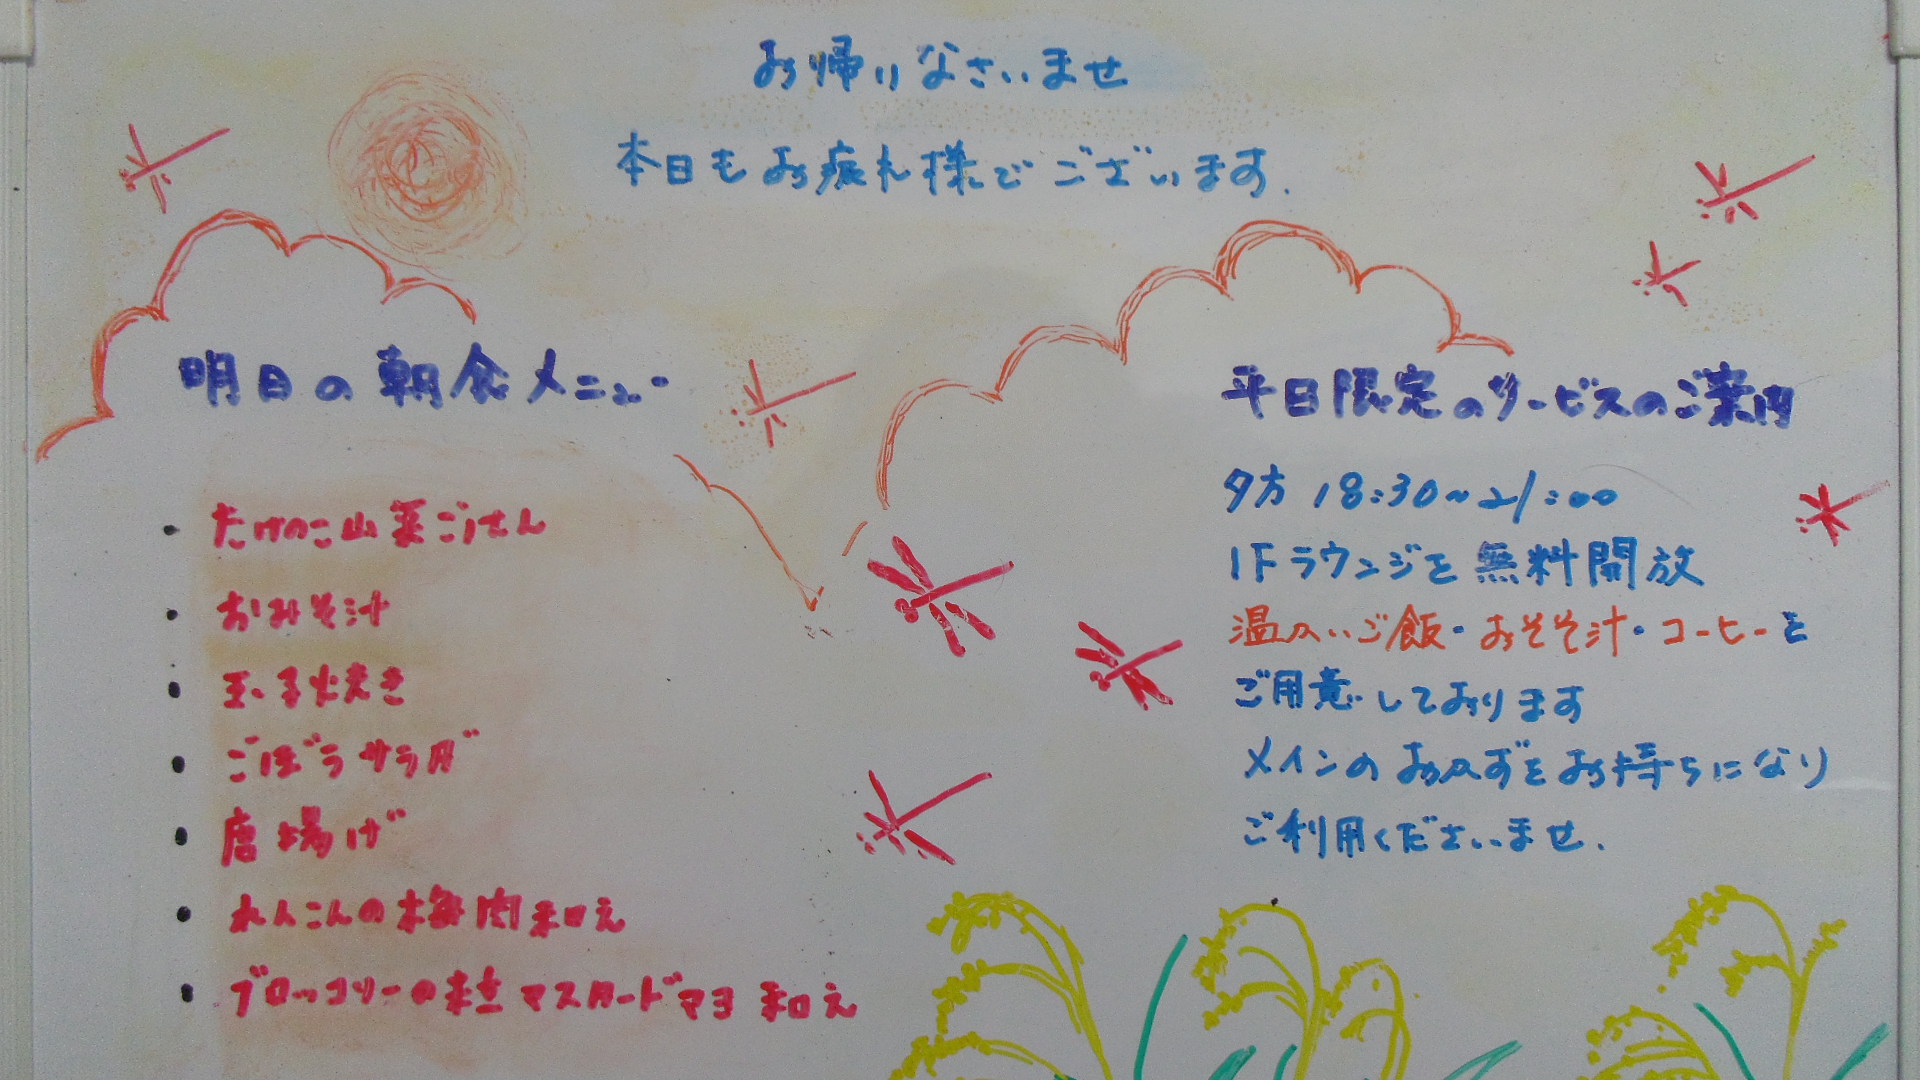 お帰りなさいませ
本日もお疲れ様でございます.
明日の朝食メニュー
・たけのこ山菜ごはん
・おみそ汁
・玉子焼き
・ごぼうサラダ
・唐揚げ
・れんこんの梅肉和え
・ブロッコリーの粒マスタードマヨ和え
平日限定のサービスのご案内
夕方 18:30~21:00
1Fラウンジを無料開放
温かいご飯・おそそ汁・コーヒーを
ご用意しております
メインのおかずをお持ちになり
ご利用くださいませ.